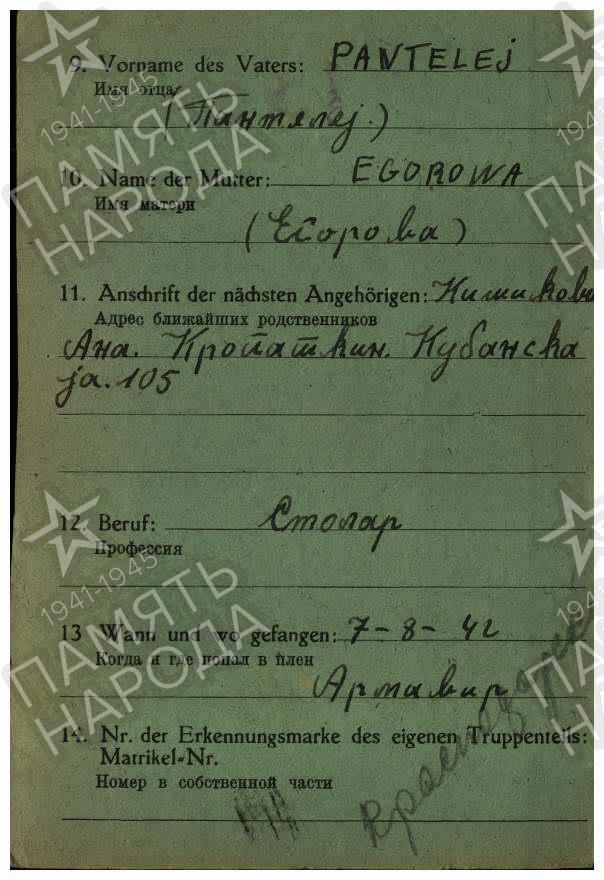 9. Vorname des Vaters: PANTELEJ
Имя отца
(Пантелеj.)
10. Name der Mutter: EGOROWA
Имя матери
(Егорова)
11. Anschrift der nächsten Angehörigen:
Адрес ближайших родственников
Ана. Кропаткин. Кубанска
ja. 105
12. Beruf: Столар
Профессия
13 Wann und wo gefangen: 7-8-42
Когда и где попал в плен
Армавир
14. Nr. der Erkennungsmarke des eigenen Truppenteils:
Matrikel-Nr.
Номер в собственной части
Краснодарск
1941-1945
ПАМЯТЬ
НАРОДА
1941-1945
ПАМЯТЬ
НАРОДА
ПАМЯТЬ
НАРОДА
1941-1945
ПАМЯТЬ
НАРОДА
1941-1945
ПАМЯТЬ
НАРОДА